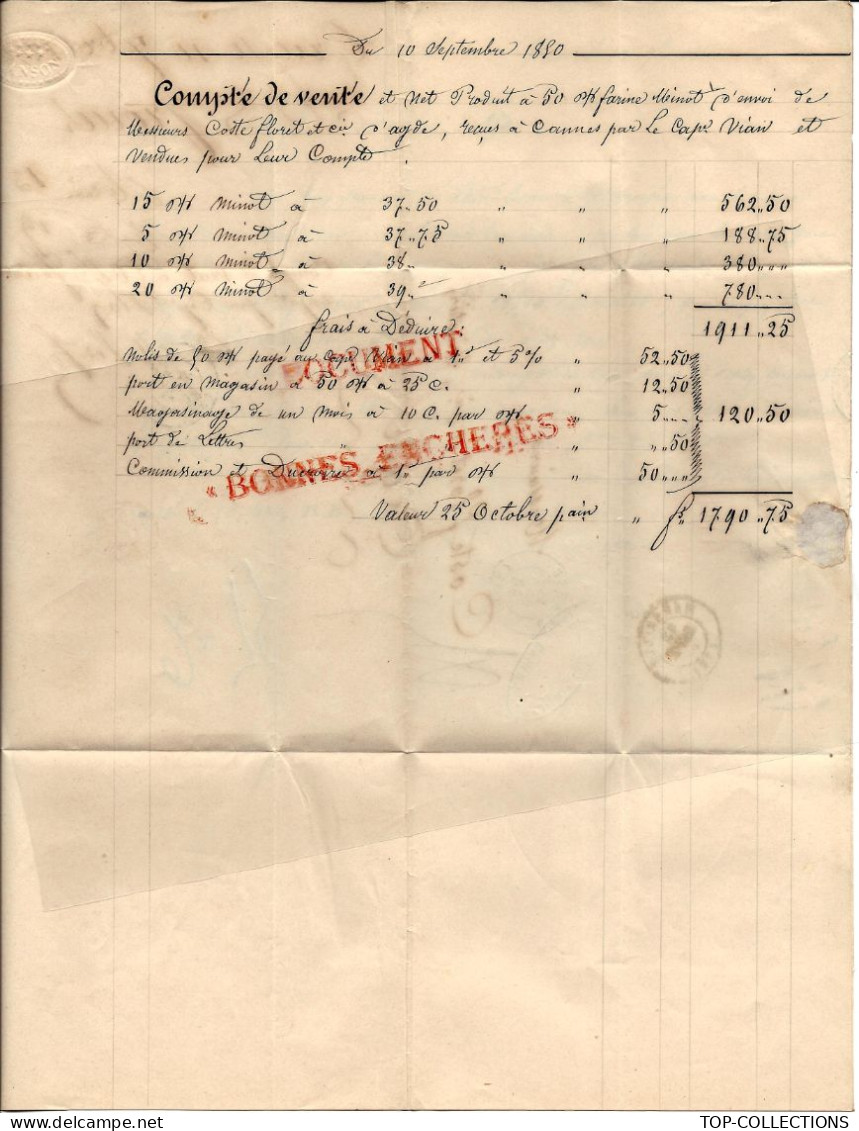 Du 10 Septembre 1850
Compte de vente et Net Produit à 50 farine Minot d'envoi de
Messieurs Coste floret et cie d'agde, reçues à Cannes par Le Capne Vian et
Vendues pour Leur Compte.
15 minot à 37"50 " " " 562"50
5 minot à 37"75 " " " 188"75
10 minot à 38" " " " 380"""
20 minot à 39" " " " 780"""
frais à Déduire: 1911"25
Nolis de 50 payé au Capne Vian à 1" et 5% " 52"50
port en magasin à 50 à 25 C. " 12"50
Magasinage de un mois à 10 C. par " 5""" 120"50
port de Lettres " " ""50
Commission et Ducroire à 1" par " 50"""
Valeur 25 Octobre pain " fs 1790"75
DOCUMENT
* BONNES ENCHERES *
TOP-COLLECTIONS